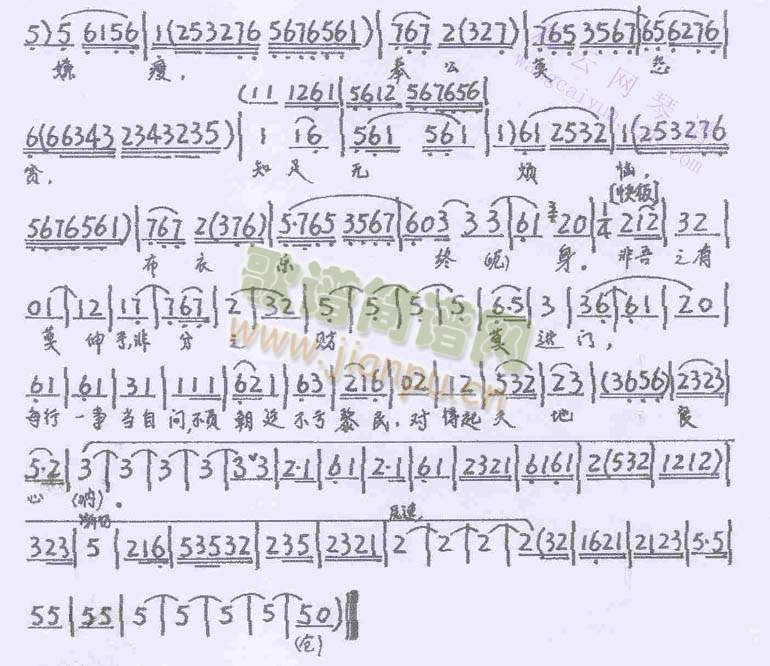 5)5 6156|1(253276 5676561)|767 2(327)|765 3567|656276|
嫌 瘦, 奉 公 莫 怨
(11 1261|5612 567656|
6(66343 2343235)|1 16|561 561|1)61 2532|1(253276
贫, 知 足 无 烦 恼,
[快板]
5676561)|767 2(376)|5·765 3567|603 33|61 20|1/4 212|32|
布 衣 乐 终 身。 非吾之有
01|12|17|767|2|32|5|5|5|5|6·5|3|36|61|20|
莫 伸 手,非 分 之 财 莫 进 门,
61|61|31|111|621|63|216|02|12|532|23|(3656)|2323|
每行 一事 当自 问,不负 朝廷 不亏 黎民. 对 得起 天 地 良
5·2|3|3|3|3|33|2·1|61|2·1|61|2321|6161|2(532|1212)|
心 (呐)。
渐切 尾速
323|5|216|53532|235|2321|2|2|2|2(32|1621|2123|5·5|
55|55|5|5|5|5|50)‖
(仓)
歌谱简谱网
www.jianpu.cn
云网琴
wangcaiyun
com